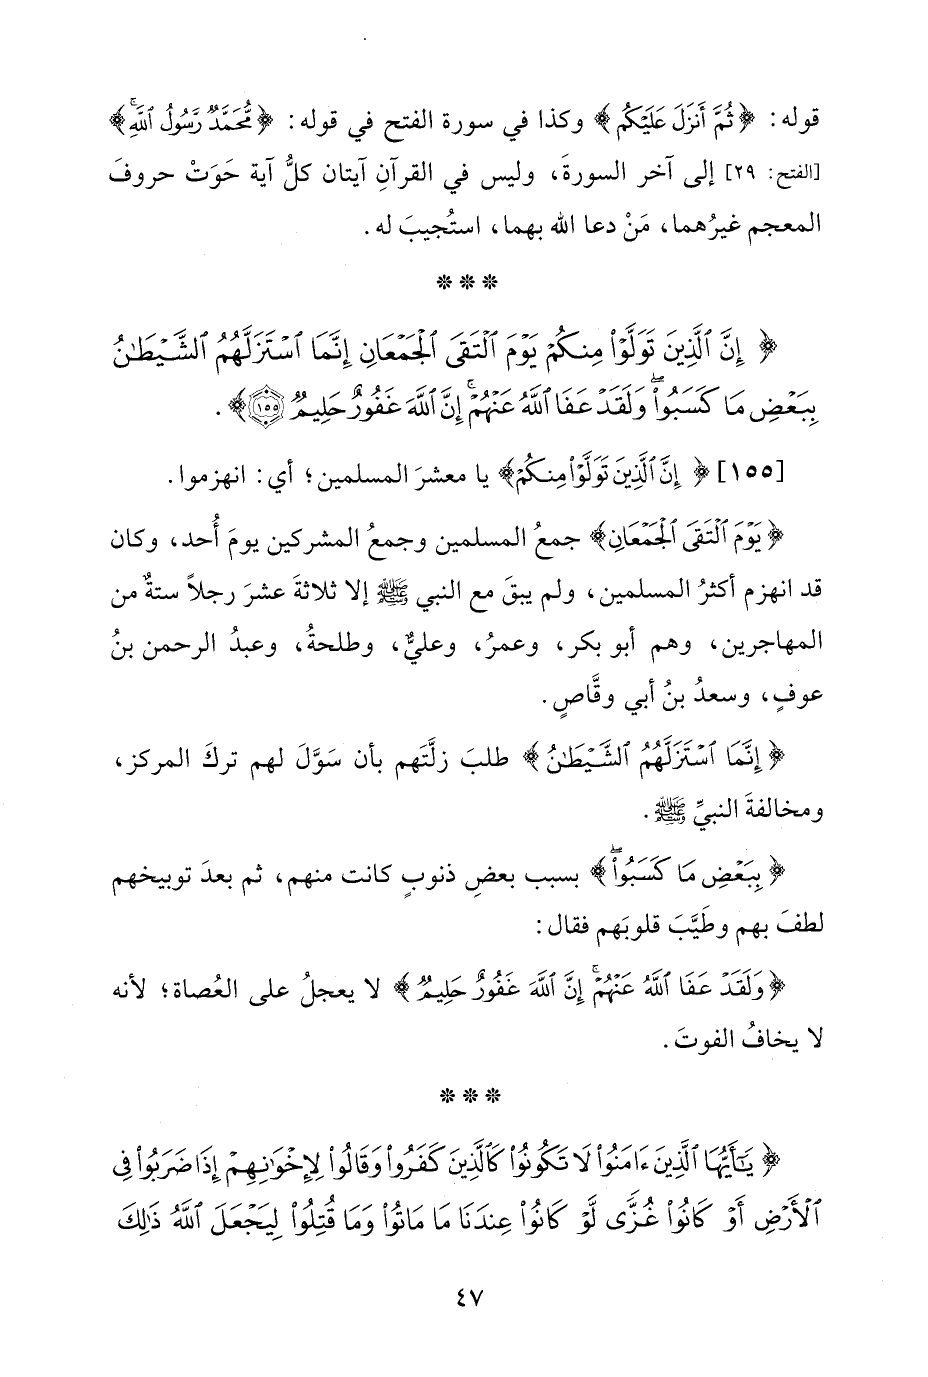 قوله: ﴿ثُمَّ أَنزَلَ عَلَيْكُم﴾ وكذا في سورة الفتح في قوله: ﴿مُّحَمَّدٌ رَّسُولُ ٱللَّهِۚ﴾
[الفتح: ٢٩] إلى آخر السورةَ، وليس في القرآنِ آيتان كلُّ آية حَوَتْ حروفَ
المعجم غيرُهما، مَنْ دعا الله بهما، استُجيبَ له.
* * *
﴿إِنَّ ٱلَّذِينَ تَوَلَّوْا۟ مِنكُمْ يَوْمَ ٱلْتَقَى ٱلْجَمْعَانِ إِنَّمَا ٱسْتَزَلَّهُمُ ٱلشَّيْطَٰنُ
بِبَعْضِ مَا كَسَبُوا۟ۖ وَلَقَدْ عَفَا ٱللَّهُ عَنْهُمْۚ إِنَّ ٱللَّهَ غَفُورٌ حَلِيمٌ ١٥٥﴾.
[١٥٥] ﴿إِنَّ ٱلَّذِينَ تَوَلَّوْا۟ مِنكُمْ﴾ يا معشرَ المسلمين؛ أي: انهزموا.
﴿يَوْمَ ٱلْتَقَى ٱلْجَمْعَانِ﴾ جمعُ المسلمين وجمعُ المشركين يومَ أُحد، وكان
قد انهزم أكثرُ المسلمين، ولم يبقَ مع النبي ﷺ إلا ثلاثةَ عشرَ رجلاً ستةٌ من
المهاجرين، وهم أبو بكر، وعمرُ، وعليٌّ، وطلحةُ، وعبدُ الرحمن بنُ
عوفٍ، وسعدُ بنُ أبي وقَّاصٍ.
﴿إِنَّمَا ٱسْتَزَلَّهُمُ ٱلشَّيْطَٰنُ﴾ طلبَ زلَّتَهم بأن سَوَّلَ لهم تركَ المركز،
ومخالفةَ النبيِّ ﷺ.
﴿بِبَعْضِ مَا كَسَبُوا۟ۖ﴾ بسبب بعضِ ذنوبٍ كانت منهم، ثم بعدَ توبيخهم
لطفَ بهم وطَيَّبَ قلوبَهم فقال:
﴿وَلَقَدْ عَفَا ٱللَّهُ عَنْهُمْۚ إِنَّ ٱللَّهَ غَفُورٌ حَلِيمٌ﴾ لا يعجلُ على العُصاة؛ لأنه
لا يخافُ الفوتَ.
* * *
﴿يَٰٓأَيُّهَا ٱلَّذِينَ ءَامَنُوا۟ لَا تَكُونُوا۟ كَٱلَّذِينَ كَفَرُوا۟ وَقَالُوا۟ لِإِخْوَٰنِهِمْ إِذَا ضَرَبُوا۟ فِى
ٱلْأَرْضِ أَوْ كَانُوا۟ غُزًّى لَّوْ كَانُوا۟ عِندَنَا مَا مَاتُوا۟ وَمَا قُتِلُوا۟ لِيَجْعَلَ ٱللَّهُ ذَٰلِكَ
٤٧